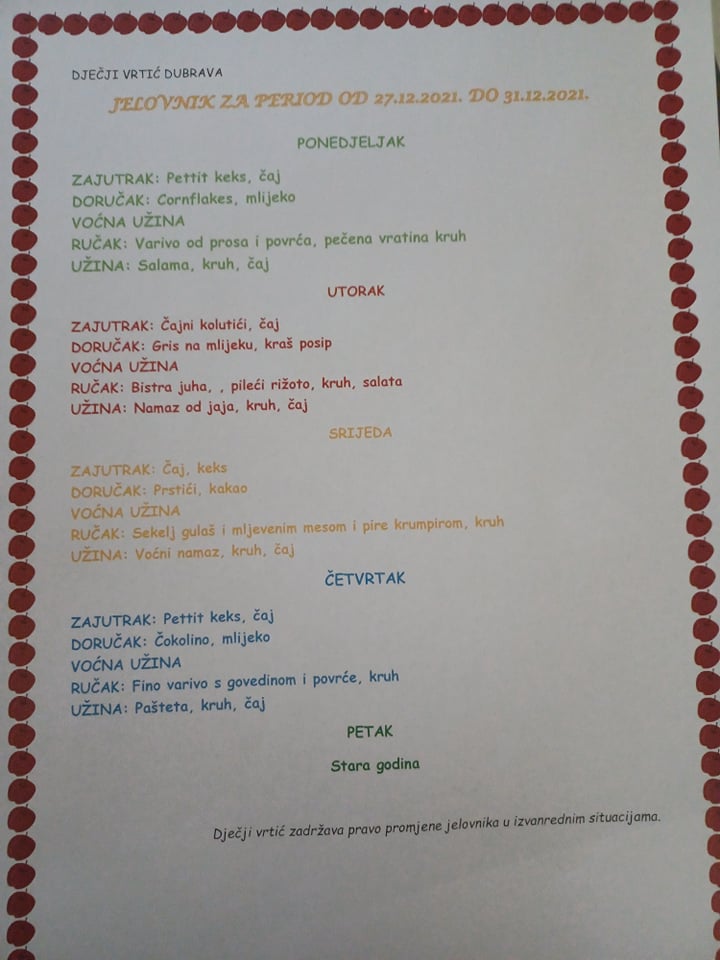 DJEČJI VRTIĆ DUBRAVA
JELOVNIK ZA PERIOD OD 27.12.2021. DO 31.12.2021.
PONEDJELJAK
ZAJUTRAK: Pettit keks, čaj
DORUČAK: Cornflakes, mlijeko
VOĆNA UŽINA
RUČAK: Varivo od prosa i povrća, pečena vratina kruh
UŽINA: Salama, kruh, čaj
UTORAK
ZAJUTRAK: Čajni kolutići, čaj
DORUČAK: Gris na mlijeku, kraš posip
VOĆNA UŽINA
RUČAK: Bistra juha, , pileći rižoto, kruh, salata
UŽINA: Namaz od jaja, kruh, čaj
SRIJEDA
ZAJUTRAK: Čaj, keks
DORUČAK: Prstići, kakao
VOĆNA UŽINA
RUČAK: Sekelj gulaš i mljevenim mesom i pire krumpirom, kruh
UŽINA: Voćni namaz, kruh, čaj
ČETVRTAK
ZAJUTRAK: Pettit keks, čaj
DORUČAK: Čokolino, mlijeko
VOĆNA UŽINA
RUČAK: Fino varivo s govedinom i povrće, kruh
UŽINA: Pašteta, kruh, čaj
PETAK
Stara godina
Dječji vrtić zadržava pravo promjene jelovnika u izvanrednim situacijama.